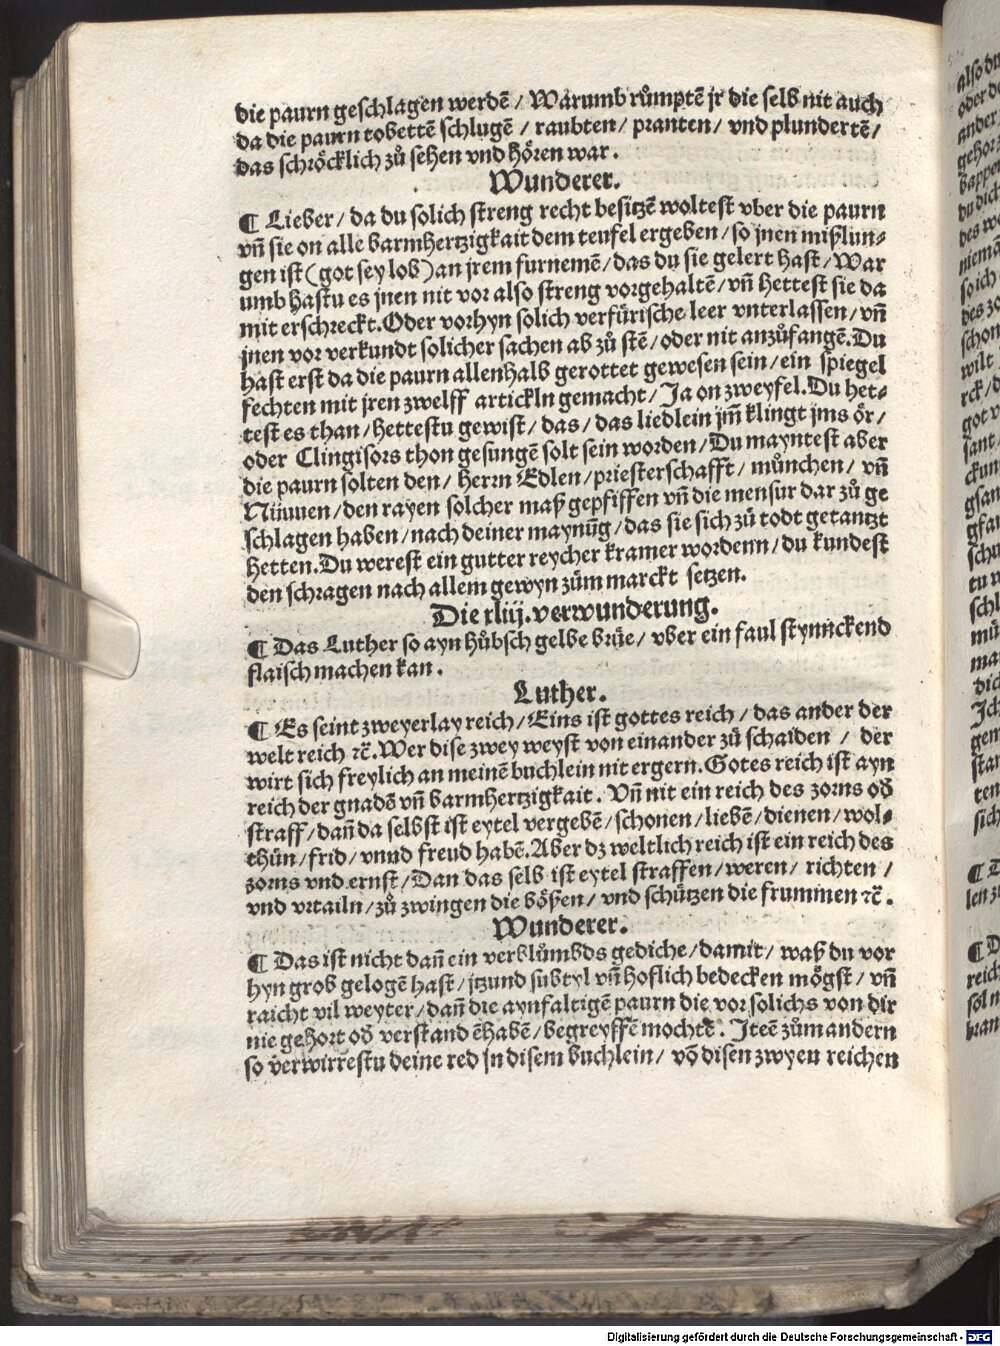 die paurn geschlagen werdē / Warumb růmptē jr die selb nit auch
da die paurn tobettē schlugē / raubten / pranten / vnd plundertē /
das schröcklich zů sehen vnd hören war .
Wunderer.
¶ Lieber / da du solich streng recht besitzē woltest vber die paurn
vn̄ sie on alle barmhertzigkait dem teufel ergeben / so jnen mißlun⸗
gen ist ( got sey lob ) an jrem furnemē / das du sie gelert hast / War
umb hastu es jnen nit vor also streng vorgehaltē / vn̄ hettest sie da
mit erschreckt. Oder vorhyn solich verfürische leer vnterlassen / vn̄
jnen vor verkundt solicher sachen ab zů stē / oder nit anzůfangē. Du
hast erst da die paurn allenhalb gerottet gewesen sein / ein spiegel
fechten mit jren zwelff artickln gemacht / Ja on zweyfel. Du het⸗
test es than / hettestu gewist / das / das liedlein jm̄ klingt jms ör /
oder Clingisors thon gesungē solt sein worden / Du mayntest aber
die paurn solten den / herrn Edlen / priesterschafft / můnchen / vn̄
Nünuen / den rayen solcher maß gepfiffen vn̄ die mensur dar zů ge
schlagen haben / nach deiner maynūg / das sie sich zů todt getantzt
hetten. Du werest ein gutter reycher kramer wordenn / du kundest
den schragen nach allem gewyn zům marckt setzen.
Die xliij. verwunderung.
¶ Das Luther so ayn hůbsch gelbe brüe / vber ein faul stynnckend
flaisch machen kan .
Luther.
¶ Es seint zweyerlay reich / Eins ist gottes reich / das ander der
welt reich ⁊c̄. Wer dise zwey weyst von einander zů schaiden / der
wirt sich freylich an meinē buchlein nit ergern. Gotes reich ist ayn
reich der gnadē vn̄ barmhertzigkait . Vn̄ nit ein reich des zorns od̄
straff / dan̄ da selbst ist eytel vergebē / schonen / liebē / dienen / wol⸗
thün / frid / vnnd freud habē. Aber dz weltlich reich ist ein reich des
zorns vnd ernst / Dan das selb ist eytel straffen / weren / richten /
vnd vrtailn / zů zwingen die bößen / vnd schützen die frummen ⁊c̄ .
Wunderer.
¶ Das ist nicht dan̄ ein verblůmbds gediche / damit / waß du vor
hyn grob gelogē hast / jtzund subtyl vn̄ hoflich bedecken mögst / vn̄
raicht vil weyter / dan̄ die aynfaltigē paurn die vor solichs von dir
nie gehort od̄ verstand ēhabē / begreyffē mochtē . Iteē zům andern
so verwirrestu deine red jn disem buchlein / vō disen zwyeu reichen
Digitalisierung gefördert durch die Deutsche Forschungsgemeinschaft - DFG